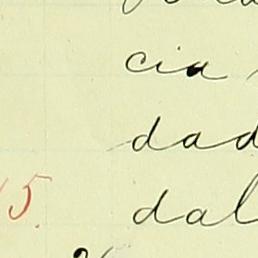 cia
dad
5. dal